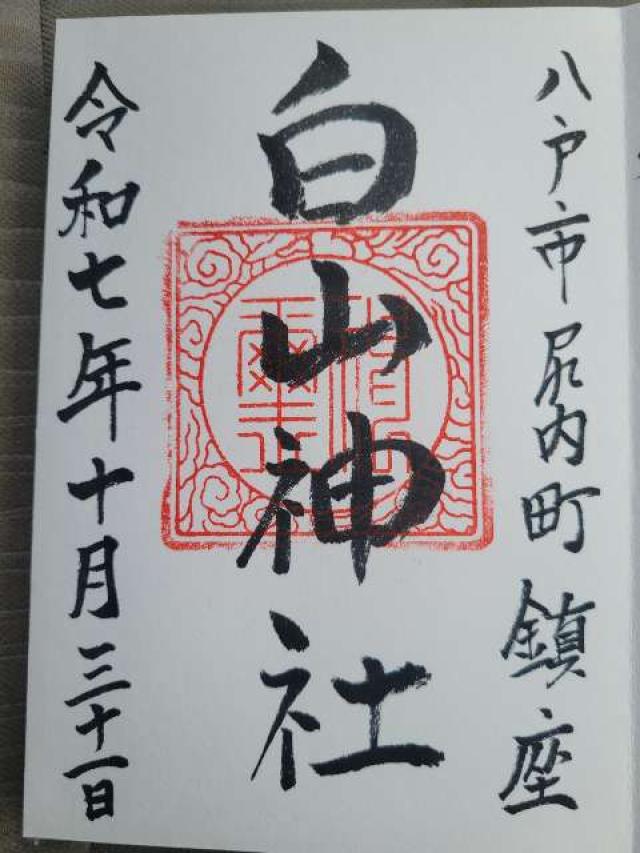 八戸市尻内町鎮座
白山神社
令和七年十月三十一日